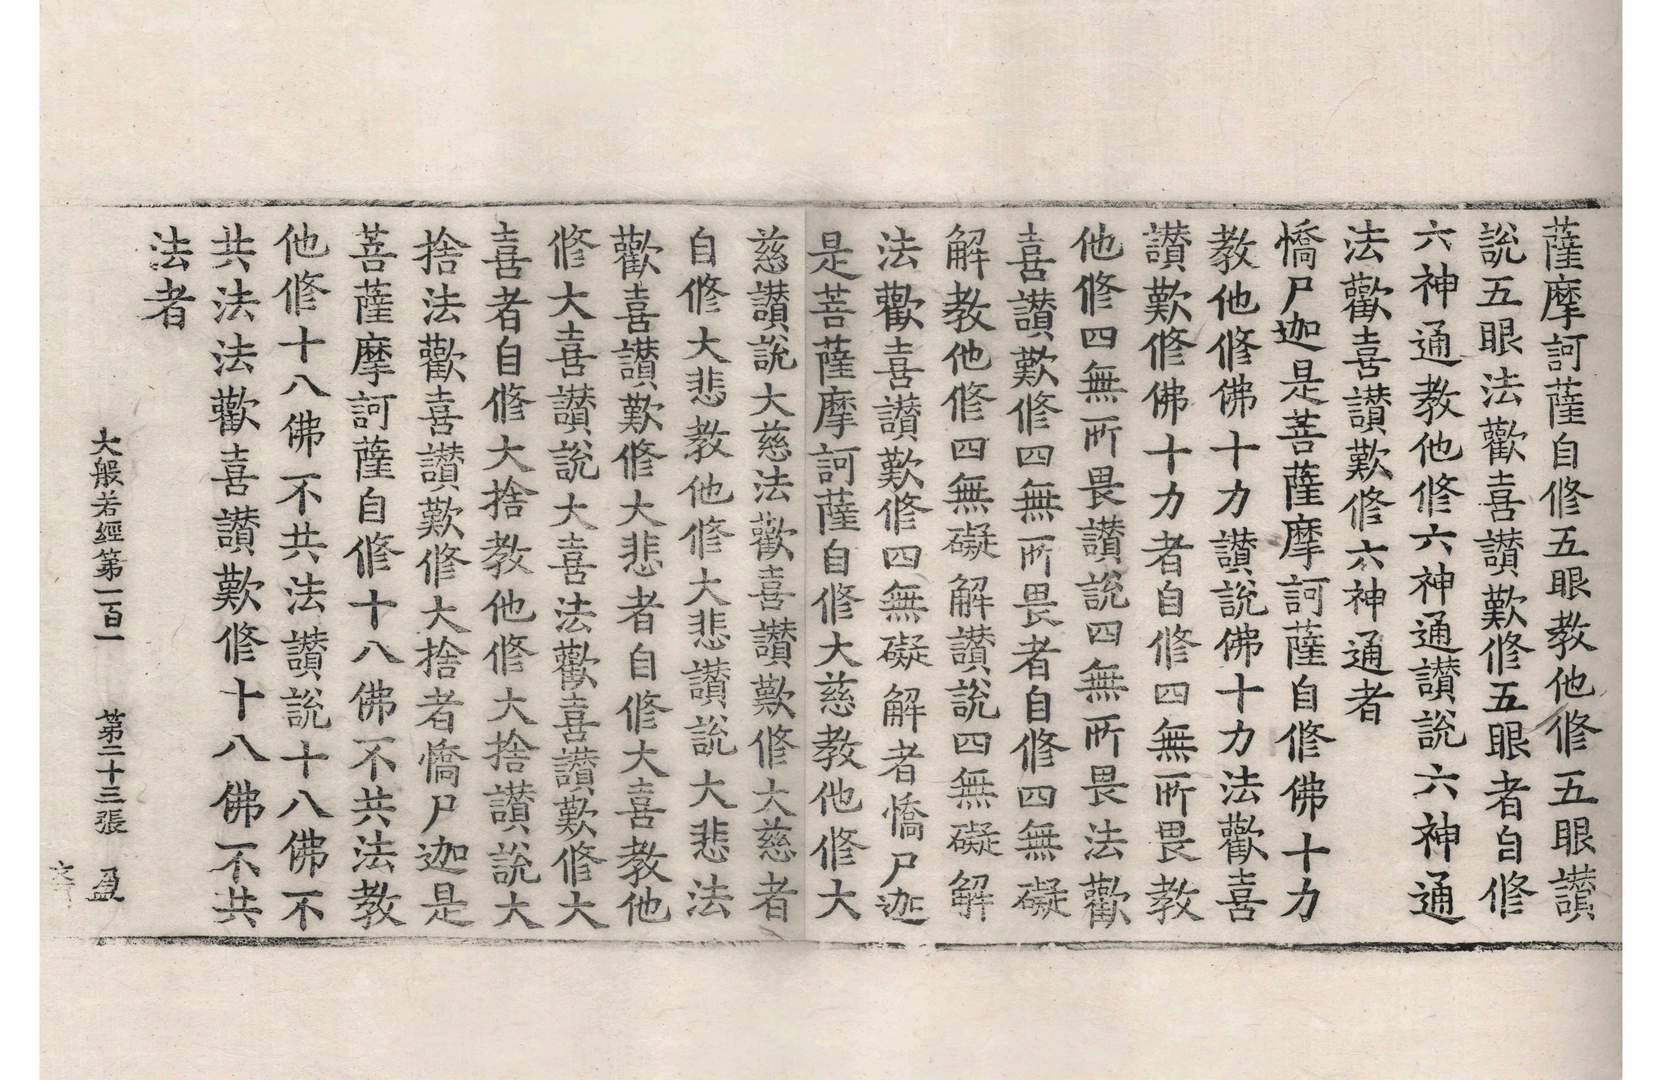 薩摩訶薩自修五眼教他修五眼讚
說五眼法歡喜讚歎修五眼者自修
六神通教他修六神通讚說六神通
法歡喜讚歎修六神通者
憍尸迦是菩薩摩訶薩自修佛十力
教他修佛十力讚說佛十力法歡喜
讚歎修佛十力者自修四無所畏教
他修四無所畏讚說四無所畏法歡
喜讚歎修四無所畏者自修四無礙
解教他修四無礙解讚說四無礙解
法歡喜讚歎修四無礙解者憍尸迦
是菩薩摩訶薩自修大慈教他修大
慈讚說大慈法歡喜讚歎修大慈者
自修大悲教他修大悲讚說大悲法
歡喜讚歎修大悲者自修大喜教他
修大喜讚說大喜法歡喜讚歎修大
喜者自修大捨教他修大捨讚說大
捨法歡喜讚歎修大捨者憍尸迦是
菩薩摩訶薩自修十八佛不共法教
他修十八佛不共法讚說十八佛不
共法法歡喜讚歎修十八佛不共
法者
大般若經第一百一 第二十三張 盈